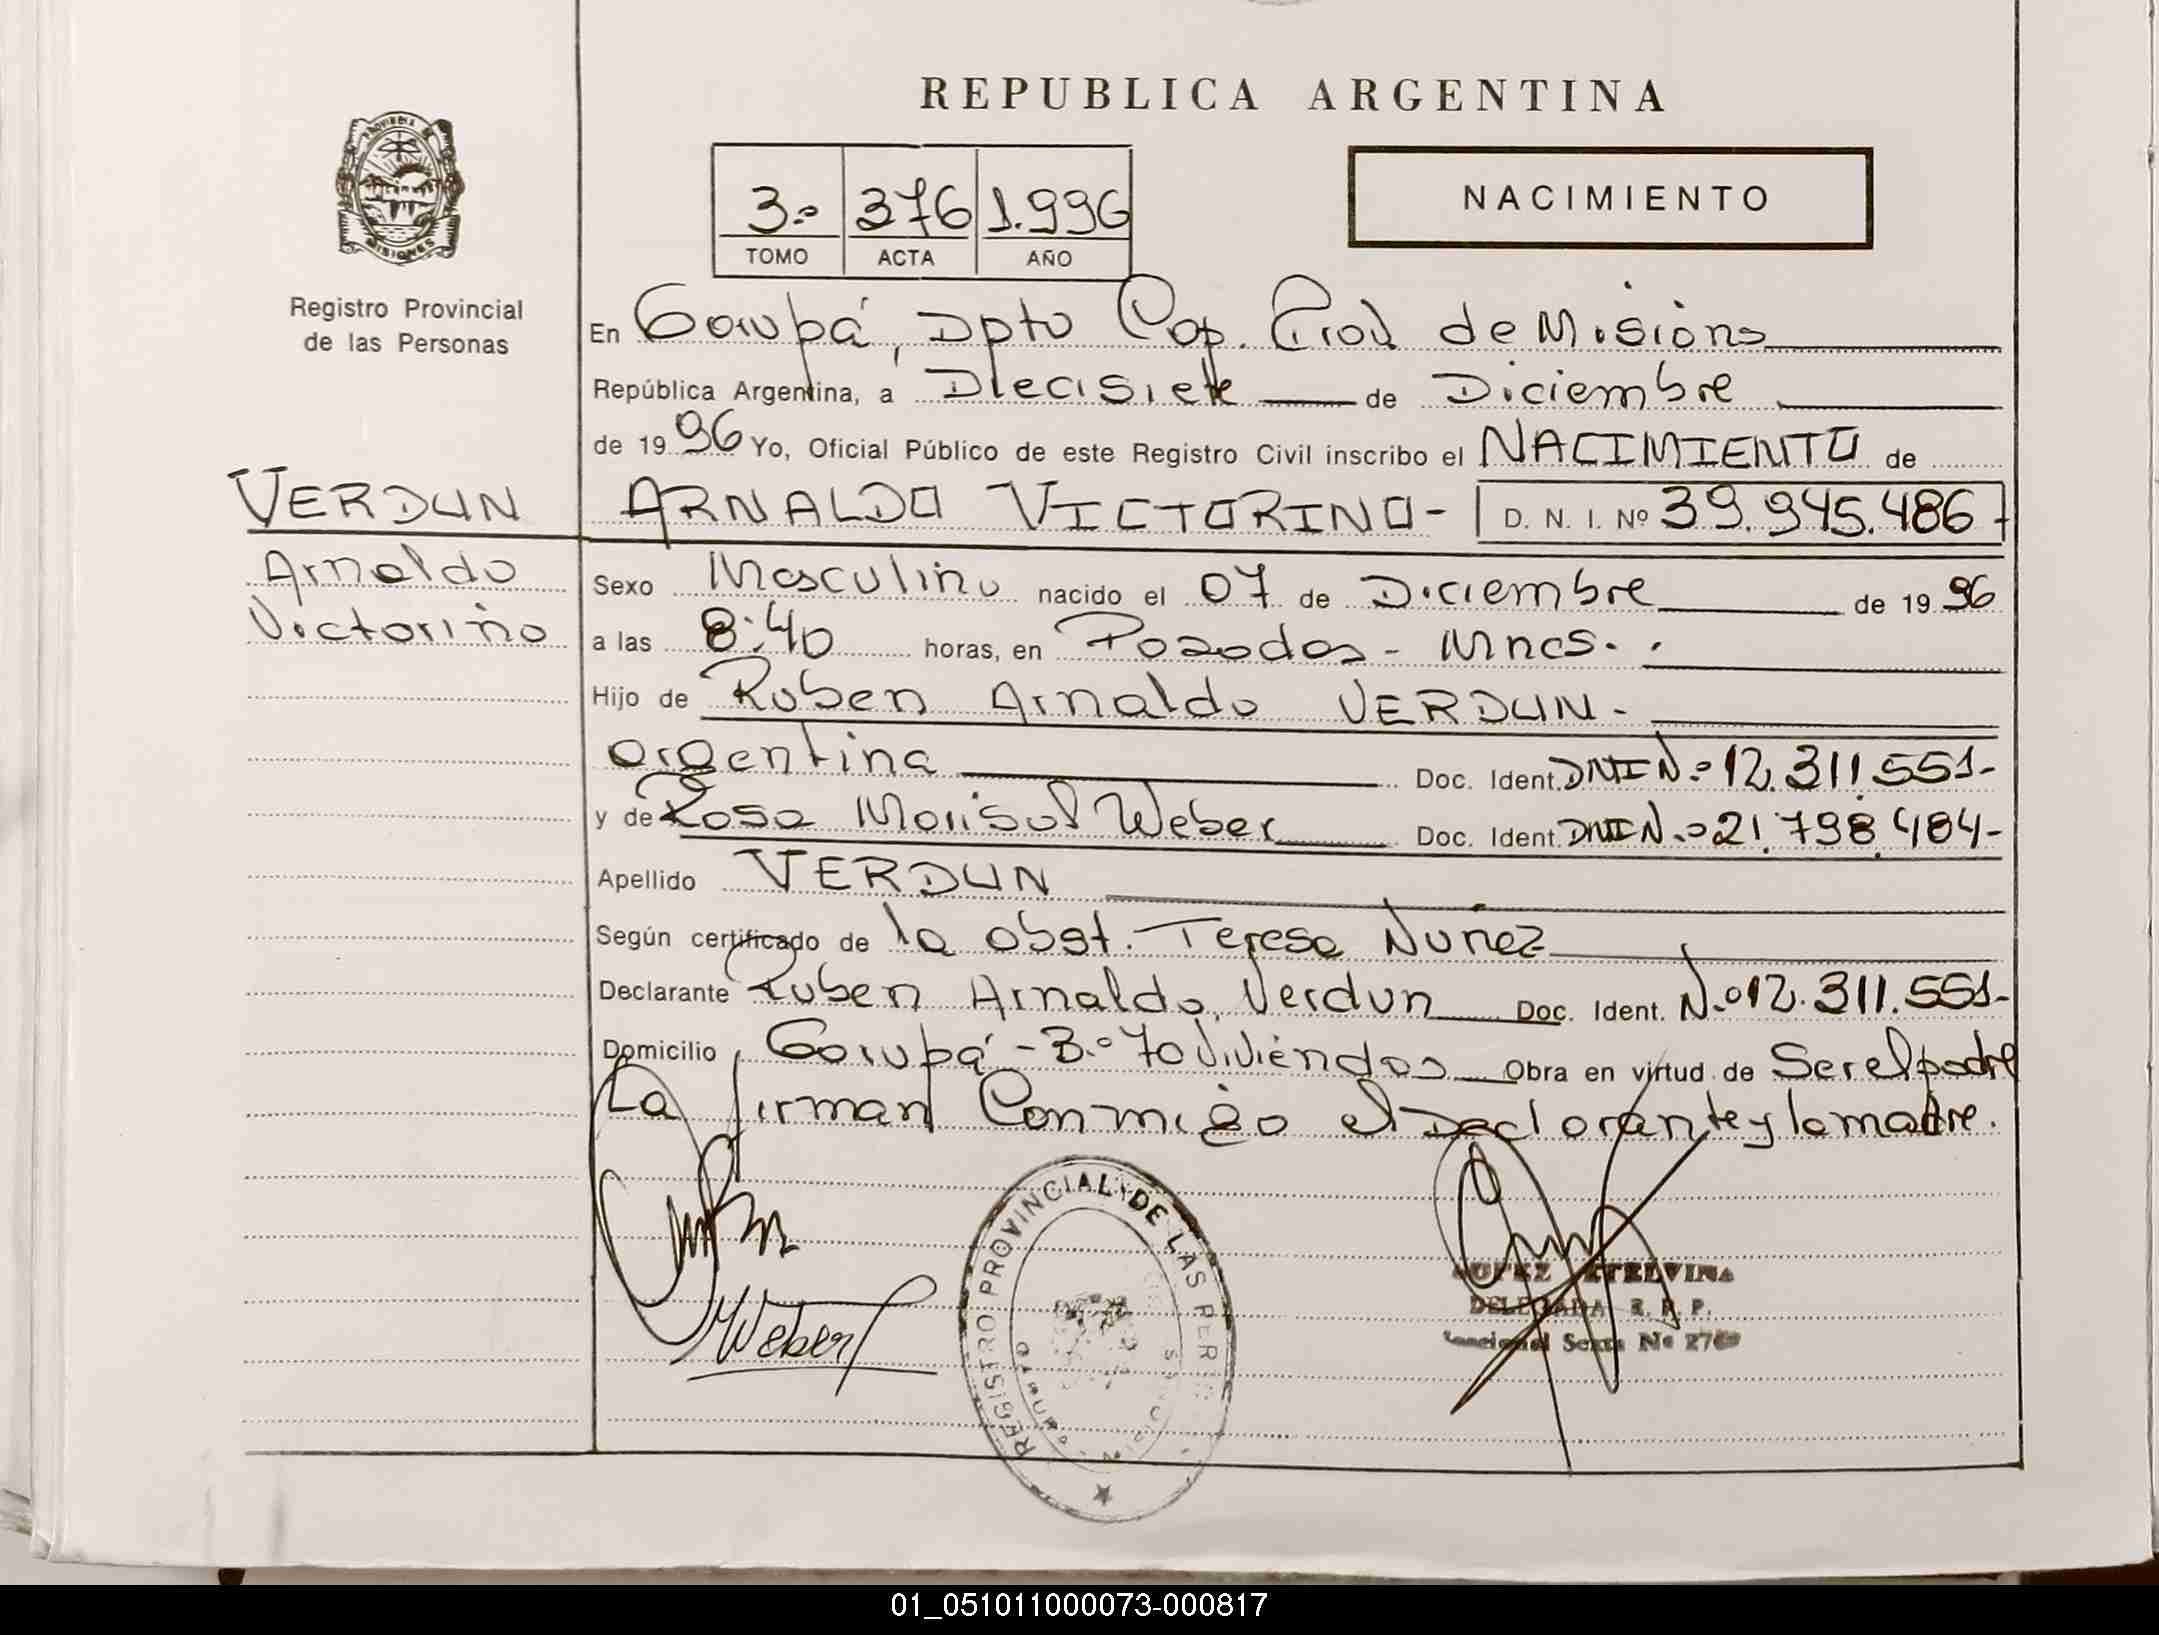 REPUBLICA ARGENTINA
PROVINCIA DE MISIONES
Registro Provincial
de las Personas
3.º 376 1.996
TOMO ACTA AÑO
NACIMIENTO
En Garupá, Dpto Cap. Prov de Misions
República Argentina, a Diecisiete de Diciembre
de 1996 Yo, Oficial Público de este Registro Civil inscribo el NACIMIENTO de
VERDUN ARNALDO VICTORINO- D. N. I. Nº 39.945.486-
Arnaldo
Victorino
Sexo Masculino nacido el 07 de Diciembre de 1996
a las 8:40 horas, en Posadas - Mnes.
Hijo de Ruben Arnaldo VERDUN-
argentina Doc. Ident. DNI N.º 12.311.551-
y de Rosa Marisol Weber Doc. Ident. DNI N.º 21.798.484-
Apellido VERDUN
Según certificado de la obst. Teresa Nuñez
Declarante Ruben Arnaldo Verdun Doc. Ident. N.º 12.311.551-
Domicilio Garupá - B.º 70 Viviendas Obra en virtud de Ser el padre
La firman Conmigo el Declarante y la madre.
Weber
REGISTRO PROVINCIAL DE LAS PER
ETELVINA
DELEGADA R. P. P.
01_051011000073-000817